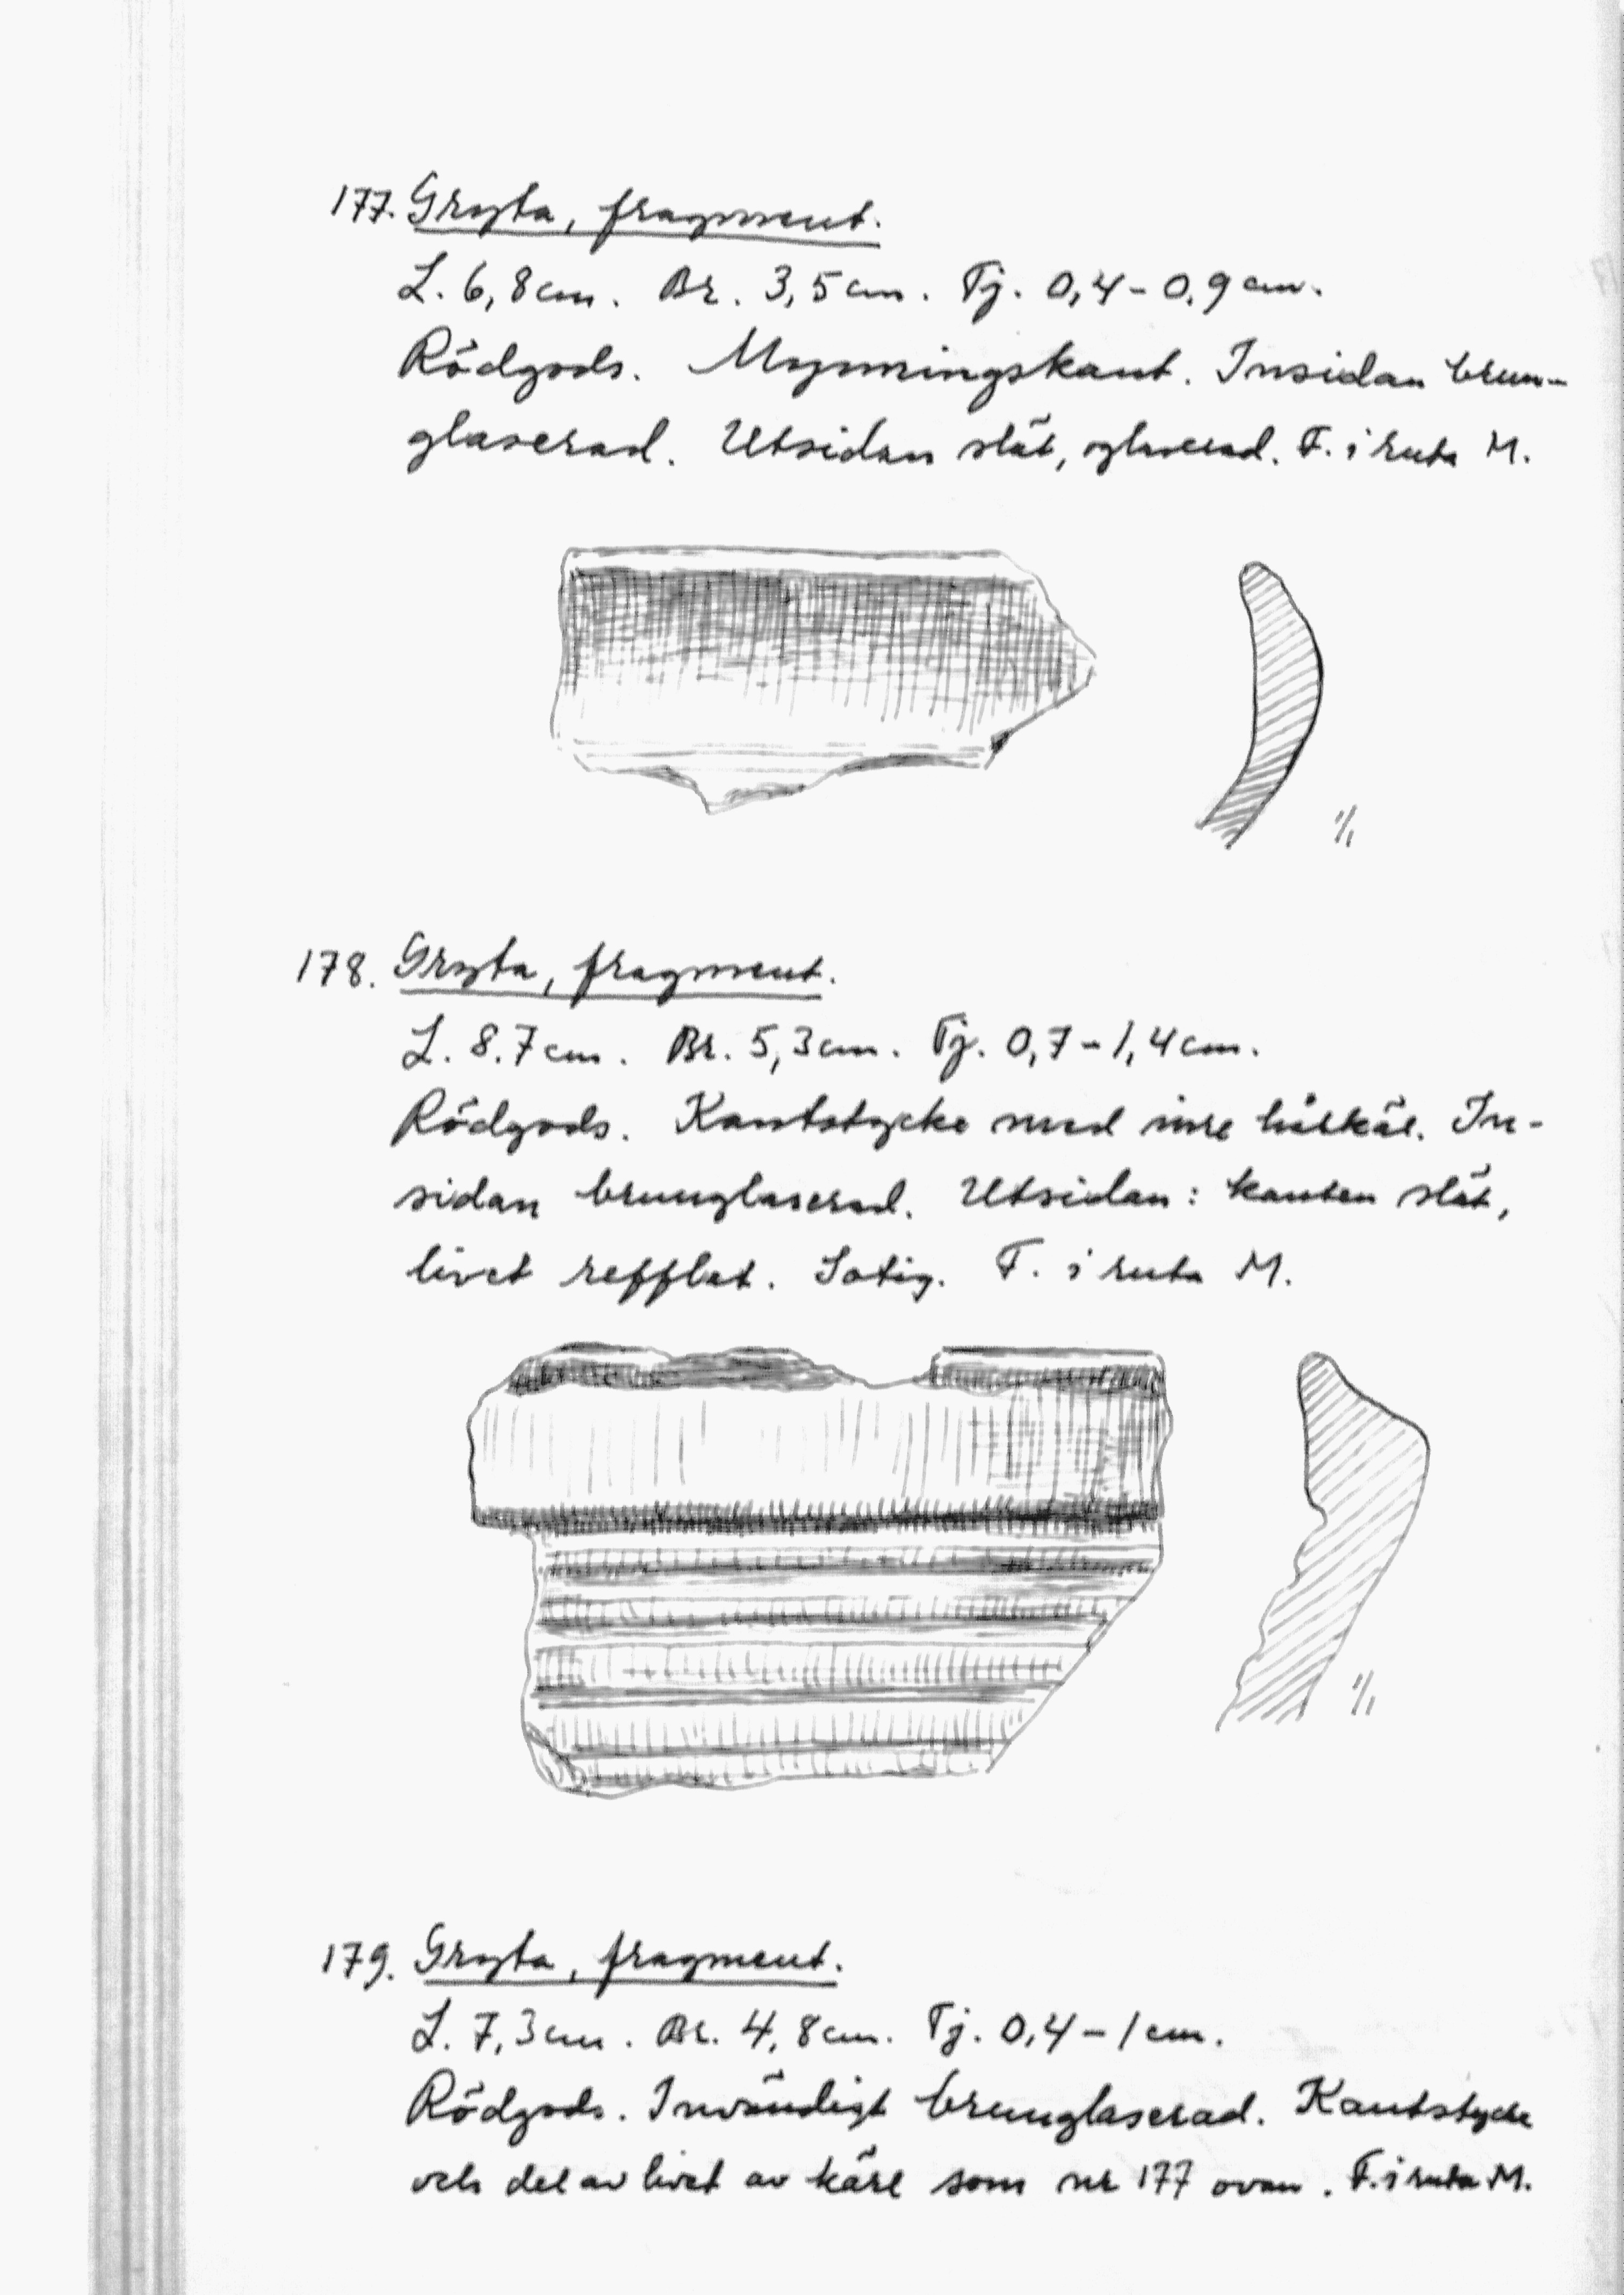 177. Gryta, fragment.
L. 6,8 cm. Br. 3,5 cm. Tj. 0,4 - 0,9 cm.
Rödgods. Mynningskant. Insidan brun-
glaserad. Utsidan slät, oglaserad. F. i ruta M.
1/1
178. Gryta, fragment.
L. 8.7 cm. Br. 5,3 cm. Tj. 0,7 - 1,4 cm.
Rödgods. Kantstycke med inre hålkäl. In-
sidan brunglaserad. Utsidan: kanten slät,
livet refflat. Sotig. F. i ruta M.
1/1
179. Gryta, fragment.
L. 7,3 cm. Br. 4,8 cm. Tj. 0,4 - 1 cm.
Rödgods. Invändigt brunglaserad. Kantstycke
och del av livet av kärl som nr 177 ovan. F. i ruta M.